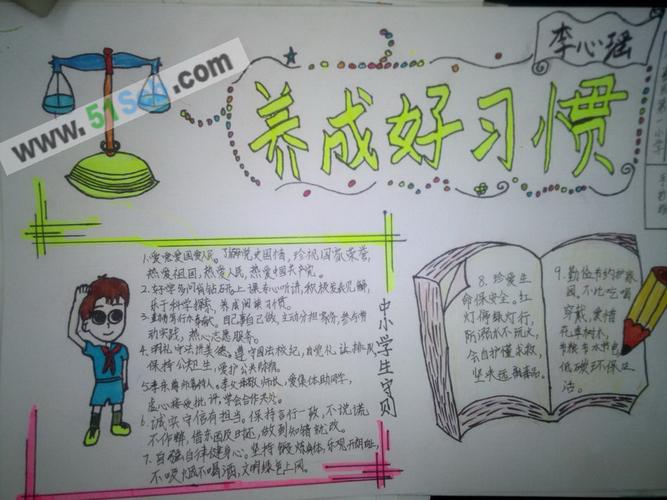 李心瑶
养成好习惯
中小学生守则
1.爱党爱国爱人民。了解党史国情，珍视国家荣誉，
热爱祖国，热爱人民，热爱中国共产党。
2.好学多问肯钻研。上课专心听讲，积极发表见解，
乐于科学探索，养成阅读习惯。
3.勤劳笃行乐奉献。自己事自己做，主动分担家务，参与劳
动实践，热心志愿服务。
4.明礼守法讲美德。遵守国法校纪，自觉礼让排队，
保持公共卫生，爱护公共财物。
5.孝亲尊师善待人。孝父母敬师长，爱集体助同学，
虚心接受批评，学会合作共处。
6.诚实守信有担当。保持言行一致，不说谎
不作弊，借东西及时还，做到知错就改。
7.自强自律健身心。坚持锻炼身体，乐观开朗向上，
不吸烟不喝酒，文明绿色上网。
8.珍爱生
命保安全。红
灯停绿灯行，
防溺水不玩火，
会自护懂求救，
坚决远离毒品。
9.勤俭节约护家
园。不比吃喝
穿戴，爱惜
花草树木，
节粮节水节电，
低碳环保生
活。
www.51s .com